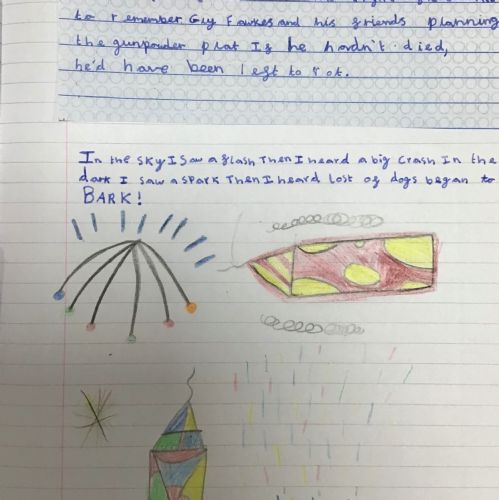 to remember Guy Fawkes and his friends planning
the gunpowder plat If he hadn't died,
he'd have been left to rot.
In the sky I Saw a flash Then I heard a big Crash In the
dark I saw a spark Then I heard lost of dogs began to
BARK!